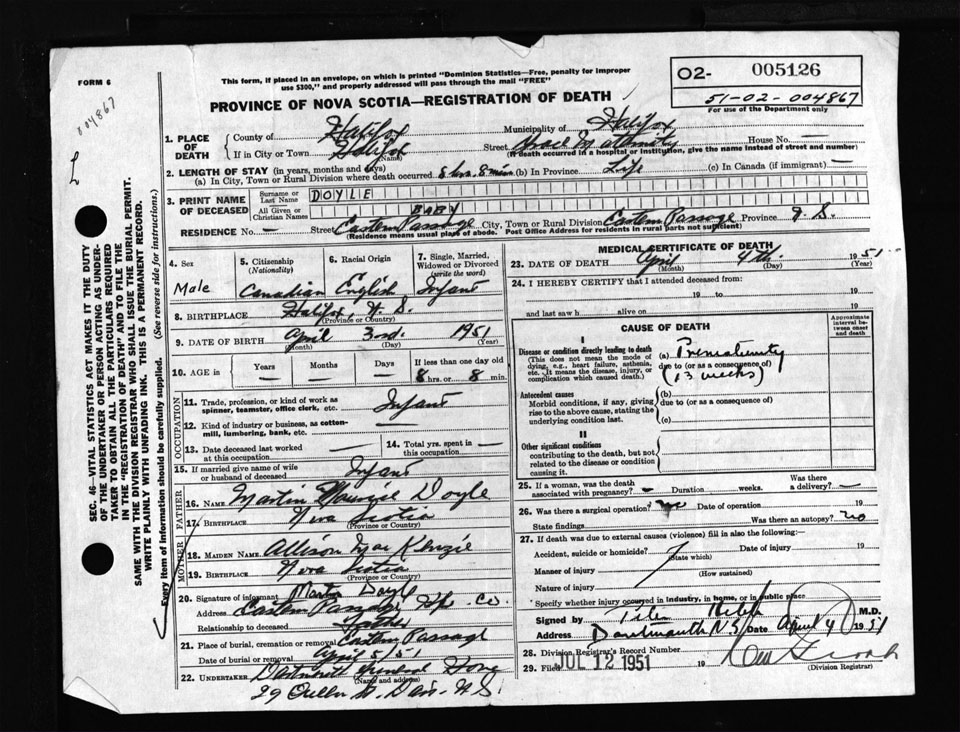 FORM 6
004867
This form, if placed in an envelope, on which is printed "Dominion Statistics—Free, penalty for improper
use $300," and properly addressed will pass through the mail "FREE"
02- 005126
51-02-004867
For use of the Department only
PROVINCE OF NOVA SCOTIA—REGISTRATION OF DEATH
1. PLACE OF DEATH
County of Halifax Municipality of Halifax
If in City or Town Halifax Street Grace Maternity House No. —
(Name) (If death occurred in a hospital or institution, give the name instead of street and number)
2. LENGTH OF STAY (in years, months and days)
(a) In City, Town or Rural Division where death occurred 8 hrs. 8 min (b) In Province Life (c) In Canada (if immigrant) —
3. PRINT NAME OF DECEASED
Surname or Last Name DOYLE
All Given or Christian Names BABY
RESIDENCE No. — Street Eastern Passage City, Town or Rural Division Eastern Passage Province N. S.
(Residence means usual place of abode. Post Office Address for residents in rural parts not sufficient)
SEC. 46—VITAL STATISTICS ACT MAKES IT THE DUTY
OF THE UNDERTAKER OR PERSON ACTING AS UNDER-
TAKER TO OBTAIN ALL THE PARTICULARS REQUIRED
IN THE "REGISTRATION OF DEATH" AND TO FILE THE
SAME WITH THE DIVISION REGISTRAR WHO SHALL ISSUE THE BURIAL PERMIT.
WRITE PLAINLY WITH UNFADING INK. THIS IS A PERMANENT RECORD.
Every item of information should be carefully supplied. (See reverse side for instructions.)
4. Sex
Male
5. Citizenship
(Nationality)
Canadian
6. Racial Origin
English
7. Single, Married,
Widowed or Divorced
(write the word)
Infant
8. BIRTHPLACE Halifax, N. S.
(Province or Country)
9. DATE OF BIRTH April 3rd. 1951
(Month) (Day) (Year)
10. AGE in Years Months Days If less than one day old
8 hrs. or 8 min.
OCCUPATION
11. Trade, profession, or kind of work as
spinner, teamster, office clerk, etc. Infant
12. Kind of industry or business, as cotton-
mill, lumbering, bank, etc. —
13. Date deceased last worked
at this occupation —
14. Total yrs. spent in
this occupation —
15. If married give name of wife
or husband of deceased Infant
FATHER
16. NAME Martin Maurice Doyle
17. BIRTHPLACE Nova Scotia
(Province or Country)
MOTHER
18. MAIDEN NAME Allison MacKenzie
19. BIRTHPLACE Nova Scotia
(Province or Country)
20. Signature of informant Martin Doyle
Address Eastern Passage Hfx. Co.
Relationship to deceased Father
21. Place of burial, cremation or removal Eastern Passage
Date of burial or removal April 5/51
22. UNDERTAKER Dartmouth Funeral Home
(Name and address)
29 Queen St. Dart. N.S.
MEDICAL CERTIFICATE OF DEATH
23. DATE OF DEATH April 4th. 1951
(Month) (Day) (Year)
24. I HEREBY CERTIFY that I attended deceased from:
19 to 19
and last saw h alive on 19
CAUSE OF DEATH
Approximate
interval be-
tween onset
and death
I
Disease or condition directly leading to death
(This does not mean the mode of
dying, e.g., heart failure, asthenia,
etc. It means the disease, injury, or
complication which caused death.)
(a) Prematurity
due to (or as a consequence of)
(13 weeks)
Antecedent causes
Morbid conditions, if any, giving
rise to the above cause, stating the
underlying condition last.
(b)
due to (or as a consequence of)
(c)
II
Other significant conditions
contributing to the death, but not
related to the disease or condition
causing it.
25. If a woman, was the death
associated with pregnancy? — Duration weeks. Was there
a delivery? —
26. Was there a surgical operation? no Date of operation 19
State findings Was there an autopsy? no
27. If death was due to external causes (violence) fill in also the following:
Accident, suicide or homicide? Date of injury 19
(State which)
Manner of injury
(How sustained)
Nature of injury
* Specify whether injury occurred in industry, in home, or in public place
Signed by M.D.
Address Dartmouth N.S. Date April 4 1951
28. Division Registrar's Record Number
29. Filed JUL 12 1951 19
(Division Registrar)